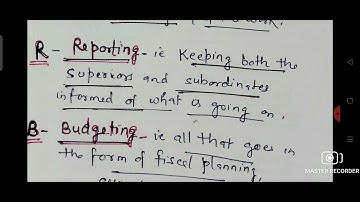 R - Reporting - ie Keeping both the
Superiors and subordinates
informed of what is going on.
B - Budgeting - ie all that goes in
the form of fiscal planning,
MASTER RECORDER